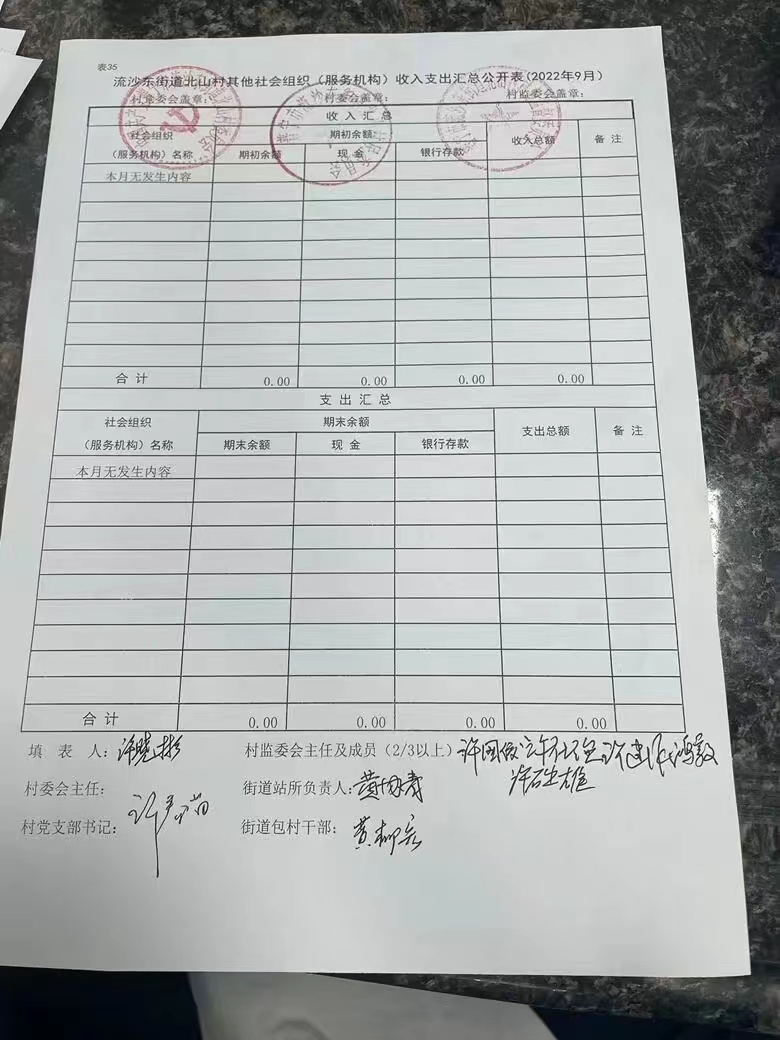 表35
流沙东街道北山村其他社会组织（服务机构）收入支出汇总公开表(2022年9月)
村党委会盖章： 村委会盖章： 村监委会盖章：
收 入 汇 总
社会组织 期初余额
（服务机构）名称 期初余额 现 金 银行存款 收入总额 备 注
本月无发生内容
合 计 0.00 0.00 0.00 0.00
支 出 汇 总
社会组织 期末余额
（服务机构）名称 期末余额 现 金 银行存款 支出总额 备 注
本月无发生内容
合 计 0.00 0.00 0.00 0.00
填 表 人： 许晓彬 村监委会主任及成员（2/3以上）
村委会主任： 街道站所负责人：
村党支部书记： 街道包村干部：